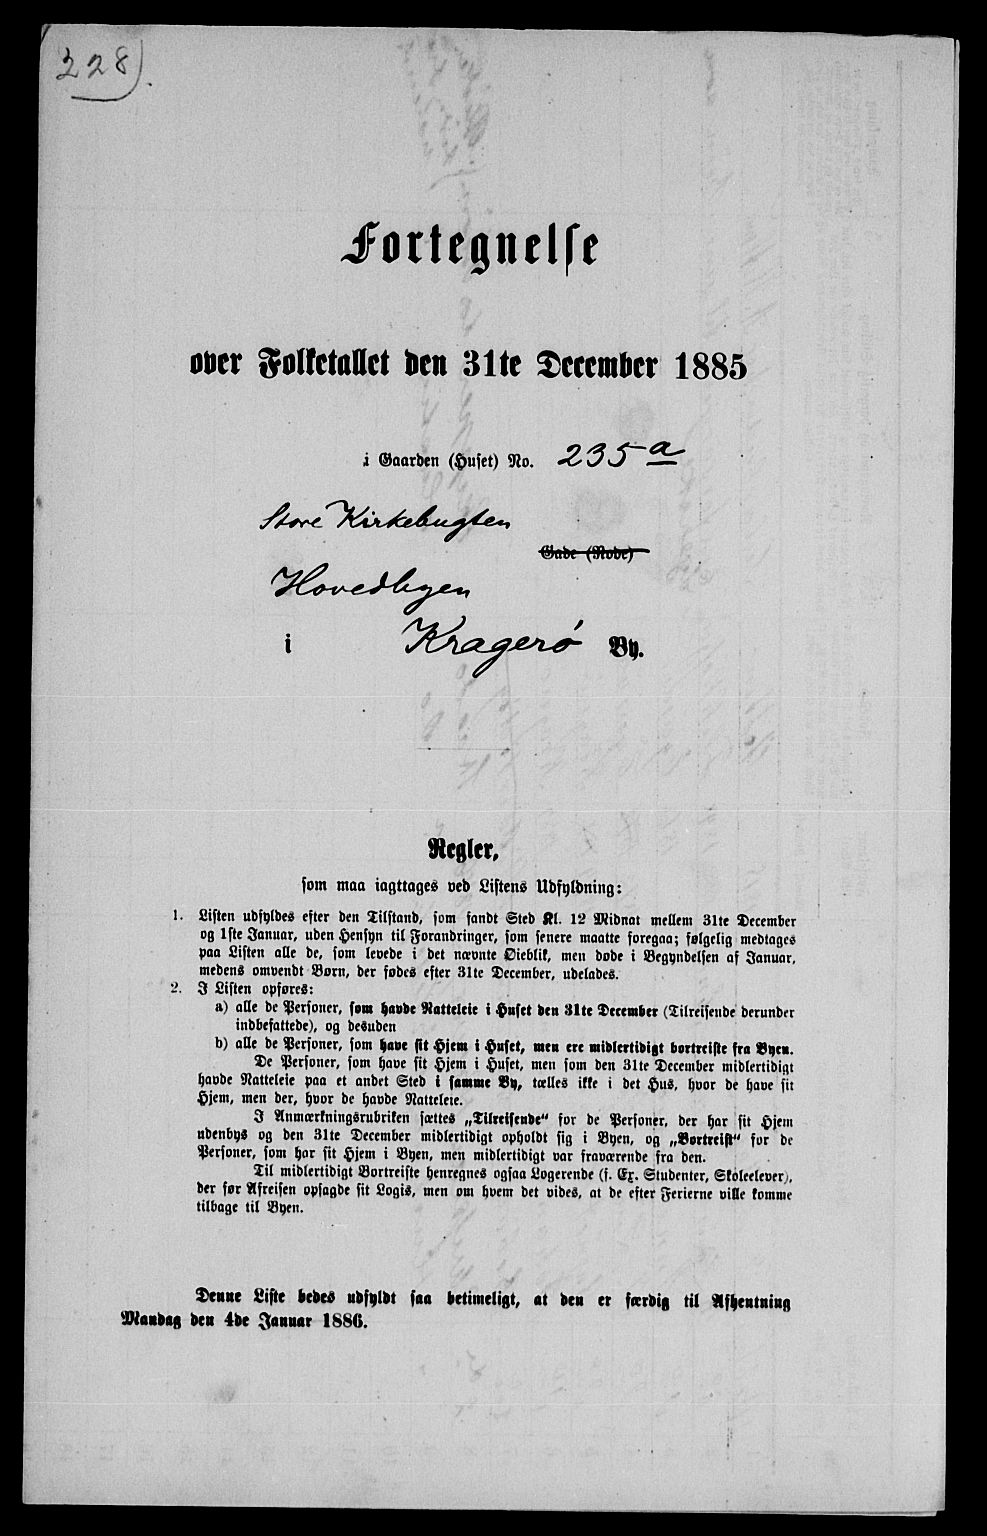 228).
Fortegnelse
over Folketallet den 31te December 1885
i Gaarden (Huset) No. 235 a
Store Kirkebugten
Gade (Rode)
Hovedbyen
i Kragerø By.
Regler,
som maa iagttages ved Listens Udfyldning:
1. Listen udfyldes efter den Tilstand, som fandt Sted Kl. 12 Midnat mellem 31te December
og 1ste Januar, uden Hensyn til Forandringer, som senere maatte foregaa; følgelig medtages
paa Listen alle de, som levede i det nævnte Øieblik, men døde i Begyndelsen af Januar,
medens omvendt Børn, der fødes efter 31te December, udelades.
2. I Listen opføres:
a) alle de Personer, som havde Natteleie i Huset den 31te December (Tilreisende derunder
indbefattede), og desuden
b) alle de Personer, som have sit Hjem i Huset, men ere midlertidigt bortreiste fra Byen.
De Personer, som have sit Hjem i Huset, men som den 31te December midlertidigt
havde Natteleie paa et andet Sted i samme By, tælles ikke i det Hus, hvor de have sit
Hjem, men der, hvor de havde Natteleie.
I Anmærkningsrubriken sættes „Tilreisende“ for de Personer, der har sit Hjem
udenbys og den 31te December midlertidigt opholdt sig i Byen, og „Bortreist“ for de
Personer, som har sit Hjem i Byen, men midlertidigt var fraværende fra den.
Til midlertidigt Bortreiste henregnes ogsaa Logerende (f. Ex. Studenter, Skoleelever),
der før Afreisen opsagde sit Logis, men om hvem det vides, at de efter Ferierne ville komme
tilbage til Byen.
Denne Liste bedes udfyldt saa betimeligt, at den er færdig til Afhentning
Mandag den 4de Januar 1886.